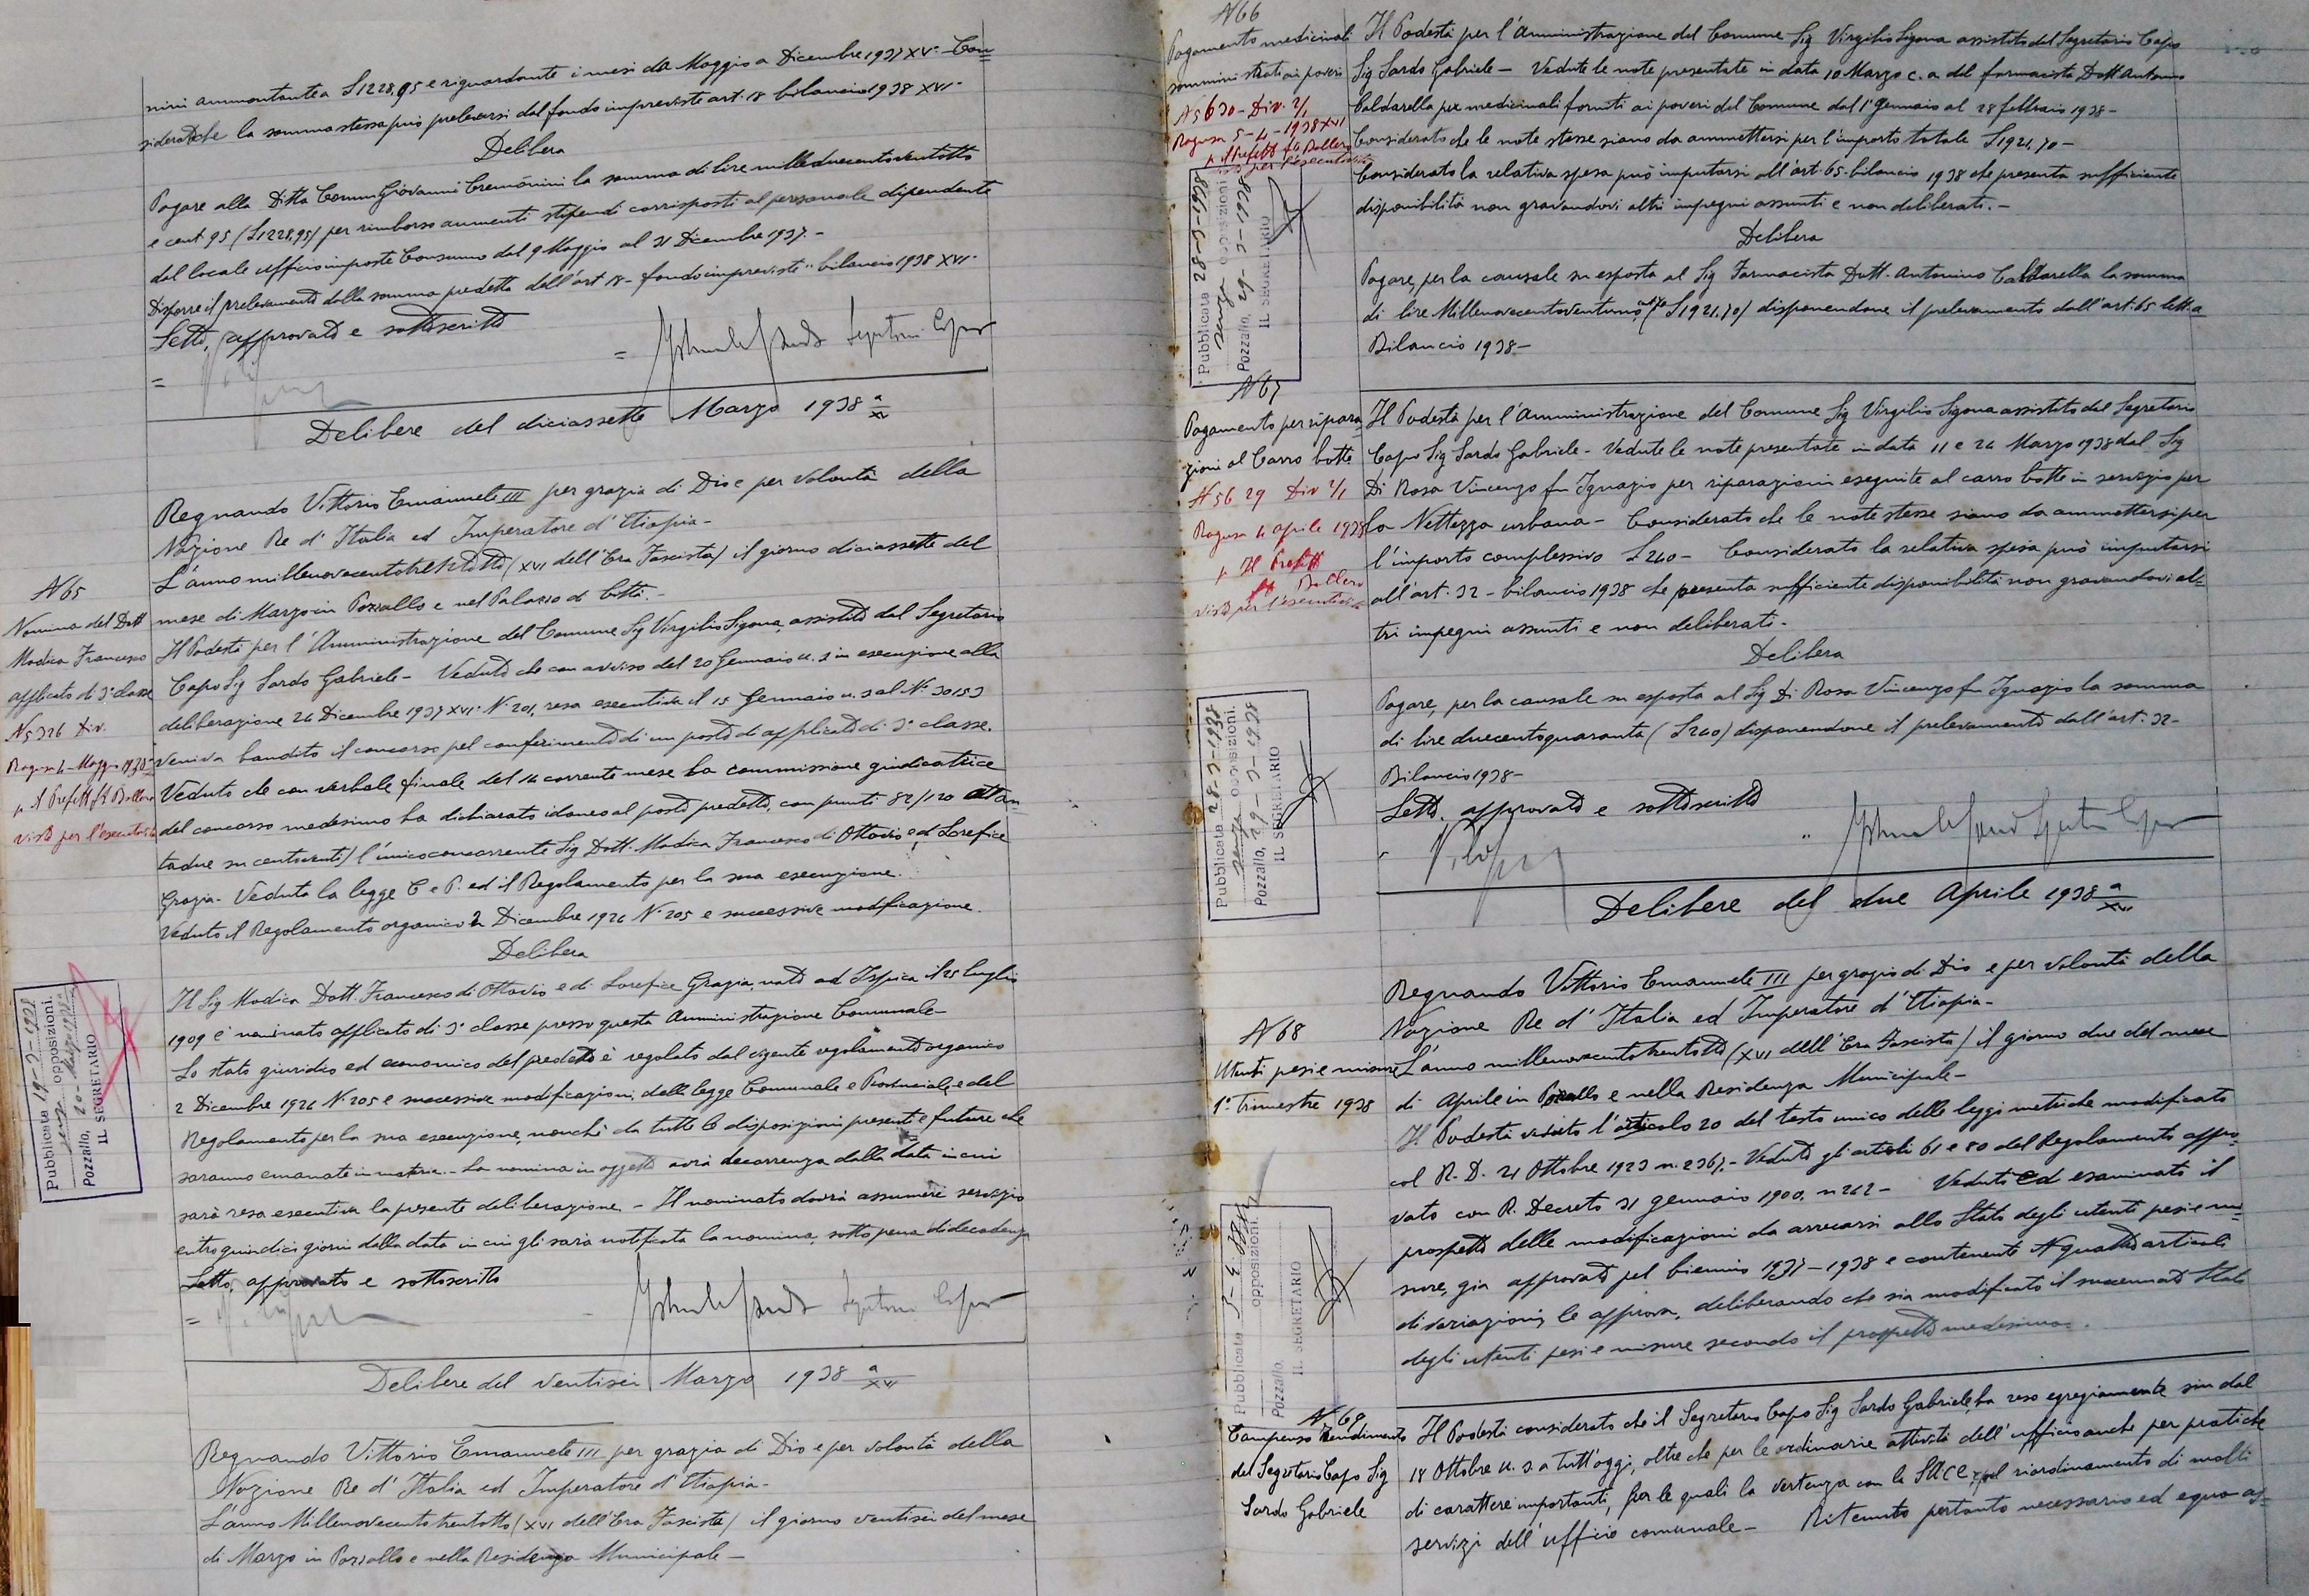 nini ammontante a L1228,95 e riguardante i mesi da Maggio a Dicembre 1937 XV- Con=
siderato che la somma stessa può prelevarsi dal fondo impreviste art. 18 bilancio 1938 XVI-
Delibera
Pagare alla Ditta Comm Giovanni Cremonini la somma di lire milleduecentoventotto
e cent. 95 (L1228,95) per rimborso aumenti stipendi corrisposti al personale dipendente
dal locale ufficio imposte Consumo dal 9 Maggio al 31 Dicembre 1937.-
Disporre il prelevamento della somma predetta dell'art 18- fondo impreviste " bilancio 1938 XVI-
Letto, approvato e sottoscritto
Segretario Capo
Delibere del diciassette Marzo 1938 a XVI
Regnando Vittorio Emanuele III per grazia di Dio e per volontà della
Nazione Re d'Italia ed Imperatore d'Etiopia-
L'anno millenovecentotrentotto (XVI dell'Era Fascista) il giorno diciassette del
mese di Marzo in Pozzallo e nel Palazzo di Città.-
N 65
Nomina del Dott
Modica Francesco
applicato di 3ª classe
N 5326 Div.
Ragusa 4- Maggio 1938
p. Il Prefetto
visto per l'esecutorietà
Il Podestà per l'Amministrazione del Comune Sig Virgilio Sigona, assistito dal Segretario
Capo Sig Sardo Gabriele- Veduto che con avviso del 20 Gennaio u.s in esecuzione alla
deliberazione 24 Dicembre 1937 XVI N. 201, resa esecutiva il 15 Gennaio u.s al N. 30153
veniva bandito il concorso pel conferimento di un posto di applicato di 3ª classe.
Veduto che con verbale finale del 14 corrente mese la commissione giudicatrice
del concorso medesimo ha dichiarato idoneo al posto predetto, con punti 82/120 ottan
tadue su centoventi) l'unico concorrente Sig Dott. Modica Francesco di Ottavio ed Lorefice
Grazia- Veduta la legge C e P. ed il Regolamento per la sua esecuzione.
Veduto il Regolamento organico 2 Dicembre 1926 N. 205 e successive modificazione.
Delibera
Il Sig Modica Dott. Francesco di Ottavio e di Lorefice Grazia, nato ad Ispica il 25 luglio
1909 è nominato applicato di 3ª classe presso questa Amministrazione Comunale-
Lo stato giuridico ed economico del predetto è regolato dal vigente regolamento organico
2 Dicembre 1926 N. 205 e successive modificazioni, dalla legge Comunale e Provinciale, e del
Regolamento per la sua esecuzione, nonchè da tutte le disposizioni presenti e future che
saranno emanate in materia.- La nomina in oggetto avrà decorrenza dalla data in cui
sarà resa esecutiva la presente deliberazione.- Il nominato dovrà assumere servizio
entro quindici giorni dalla data in cui gli sarà notificata la nomina, sotto pena di decadenza
Letto, approvato e sottoscritto
Segretario Capo
Pubblicata 19-3-1938
senza opposizioni.
Pozzallo, 20-
IL SEGRETARIO
Delibere del ventisei Marzo 1938 a XVI
Regnando Vittorio Emanuele III per grazia di Dio e per volontà della
Nazione Re d'Italia ed Imperatore d'Etiopia-
L'anno Millenovecentotrentotto (XVI dell'Era Fascista) il giorno ventisei del mese
di Marzo in Pozzallo e nella Residenza Municipale-
N 66
Pagamento medicinali
somministrati ai poveri
N 5630- Div. 2/1
Ragusa 5-4-1938 XVI
p. Il Prefetto
visto per l'esecutorietà
Il Podestà per l'Amministrazione del Comune Sig Virgilio Sigona assistito del Segretario Capo
Sig Sardo Gabriele- Vedute le note presentate in data 10 Marzo c. a. del farmacista Dott Antonino
Caldarella per medicinali forniti ai poveri del Comune dal 1º Gennaio al 28 febbraio 1938-
Considerato che le note stesse siano da ammettersi per l'importo totale L1921,70-
Considerato la relativa spesa può imputarsi all'art. 65- bilancio 1938 che presenta sufficiente
disponibilità non gravandovi altri impegni assunti e non deliberati.-
Delibera
Pagare, per la causale su esposta al Sig Farmacista Dott. Antonino Caldarella la somma
di lire Millenovecentoventuno, cent 70 (L1921,70) disponendone il prelevamento dall'art. 65 lett. a
Bilancio 1938-
Pubblicata 28-3-1938
senza opposizioni
Pozzallo, 29-3-1938
IL SEGRETARIO
N 67
Pagamento per ripara
zioni al Carro botte
N 5629 Div 2/1
Ragusa 4 aprile 1938
p. Il Prefetto
visto per l'esecutorietà
Il Podestà per l'Amministrazione del Comune Sig Virgilio Sigona assistito dal Segretario
Capo Sig Sardo Gabriele- Vedute le note presentate in data 11 e 24 Marzo 1938 dal Sig
Di Rosa Vincenzo fu Ignazio per riparazioni eseguite al carro botte in servizio per
la Nettezza urbana- Considerato che le note stesse siano da ammettersi per
l'importo complessivo L240- Considerato la relativa spesa può imputarsi
all'art. 32- bilancio 1938 che presenta sufficiente disponibilità non gravandovi al=
tri impegni assunti e non deliberati-
Delibera
Pagare, per la causale su esposta al Sig Di Rosa Vincenzo fu Ignazio la somma
di lire duecentoquaranta (L240) disponendone il prelevamento dall'art. 32-
Bilancio 1938-
Letto, approvato e sottoscritto
Segretario Capo
Pubblicata 28-3-1938
senza opposizioni.
Pozzallo, 29-3-1938
IL SEGRETARIO
Delibere del due Aprile 1938 a XVI
Regnando Vittorio Emanuele III per grazia di Dio e per volontà della
Nazione Re d'Italia ed Imperatore d'Etiopia-
L'anno millenovecentotrentotto (XVI dell'Era Fascista) il giorno due del mese
di Aprile in Pozzallo e nella Residenza Municipale-
N 68
Utenti pesi e misure
1º Trimestre 1938
Il Podestà veduto l'articolo 20 del testo unico delle leggi metriche modificato
col R. D. 31 Ottobre 1923 n. 2367.- Veduto gli articoli 61 e 80 del Regolamento appro
vato con R. Decreto 31 gennaio 1900. n 242- Veduto ed esaminato il
prospetto delle modificazioni da arrecarsi allo Stato degli utenti pesi e mi=
sure, già approvato pel biennio 1937-1938 e contenente N quattro articoli
di variazioni, le approva, deliberando che sia modificato il succennato Stato
degli utenti pesi e misure secondo il prospetto medesimo.
Pubblicata
opposizioni.
Pozzallo,
IL SEGRETARIO
N. 69
Compenso rendimento
del Segretario Capo Sig
Sardo Gabriele
Il Podestà considerato che il Segretario Capo Sig Sardo Gabriele, ha reso egregiamente sin dal
18 Ottobre u. s. a tutt'oggi, oltre che per le ordinarie attività dell'ufficio anche per pratiche
di carattere importanti, fra le quali la vertenza con la SACE, pel riordinamento di molti
servizi dell'ufficio comunale- Ritenuto pertanto necessario ed equo as=